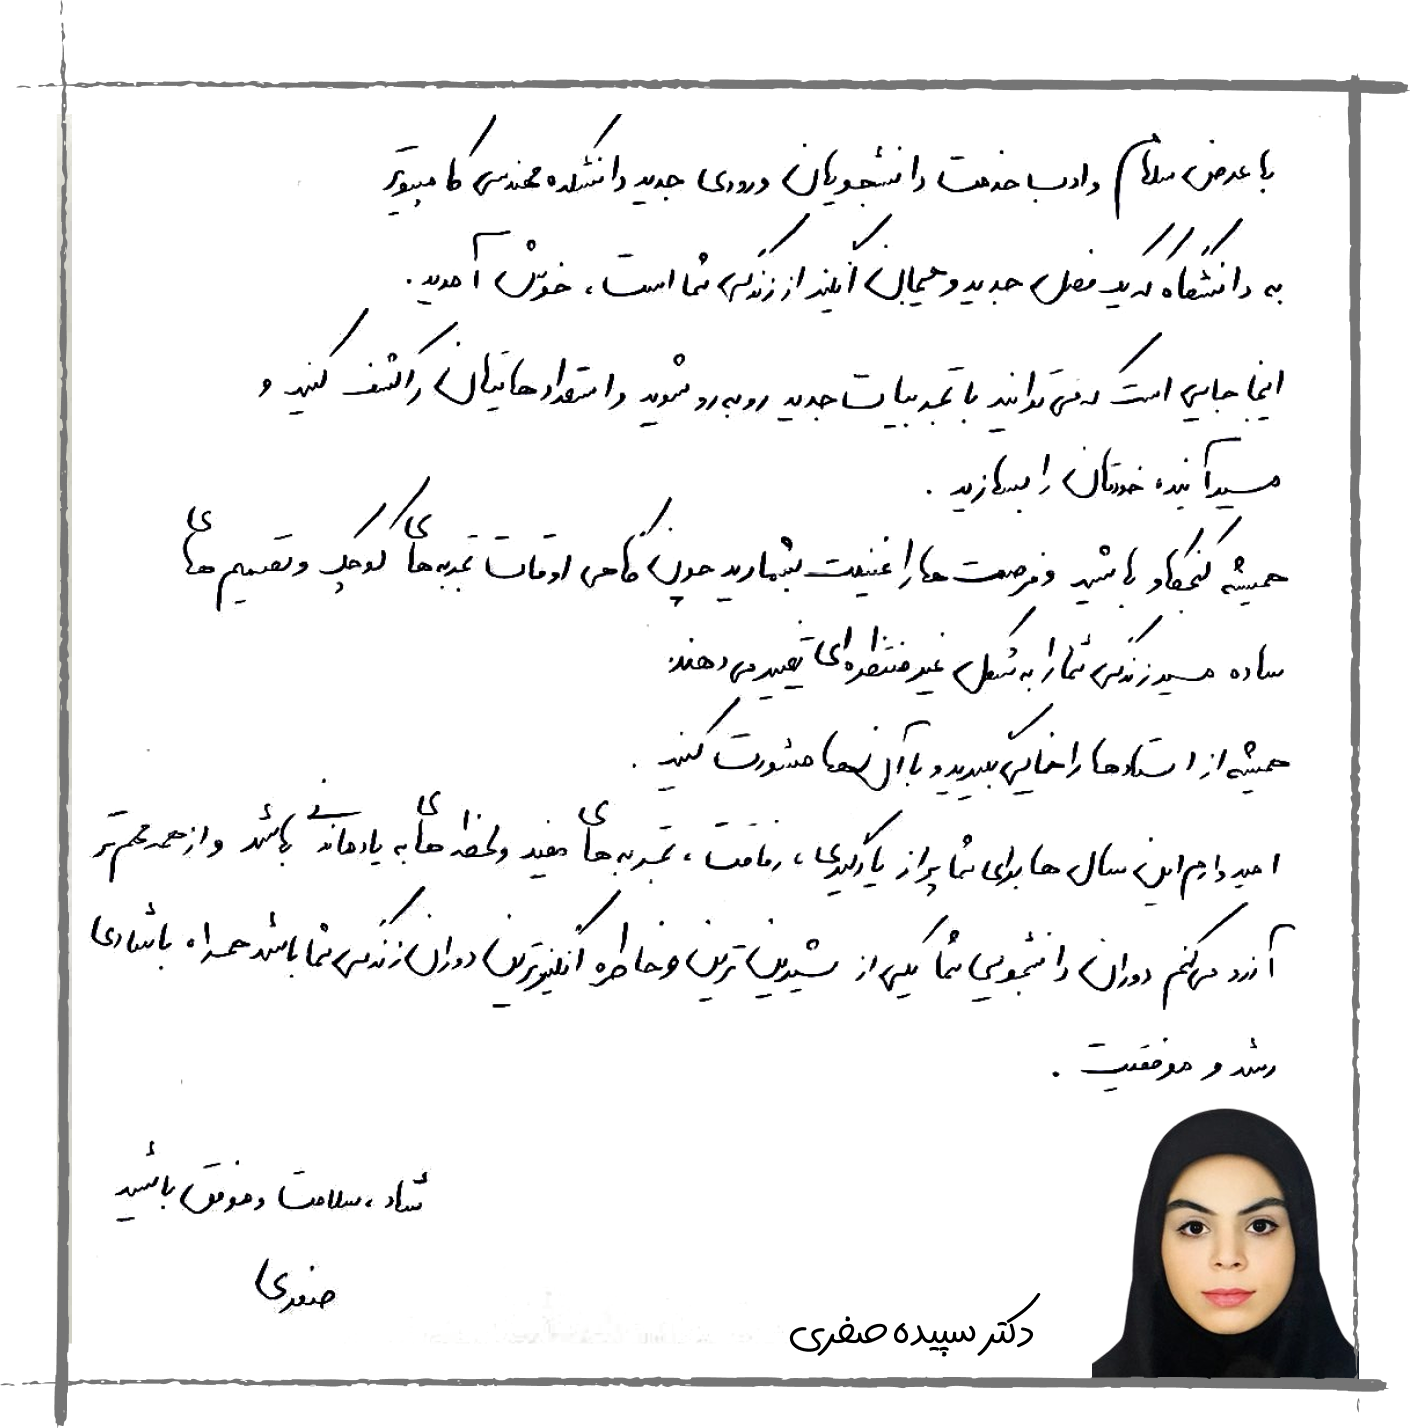 با عرض سلام و ادب خدمت دانشجویان ورودی جدید دانشکده مهندسی کامپیوتر
به دانشگاه که یک فصل جدید و هیجان انگیز از زندگی شما است، خوش آمدید.
اینجا جایی است که می‌توانید با تجربیات جدید روبه‌رو شوید و استعدادهایتان را کشف کنید و
مسیر آینده خودتان را بسازید.
همیشه کنجکاو باشید و فرصت‌ها را غنیمت بشمارید چون گاهی اوقات تجربه‌های کوچک و تصمیم‌های
ساده مسیر زندگی شما را به شکل غیرمنتظره‌ای تغییر می‌دهند.
همیشه از استادها راهنمایی بگیرید و با آن‌ها مشورت کنید.
امیدوارم این سال‌ها برای شما پر از یادگیری، رفاقت، تجربه‌های مفید و لحظه‌های به یادماندنی باشد و از همه مهم‌تر
آرزو می‌کنم دوران دانشجویی شما یکی از شیرین‌ترین و خاطره‌انگیزترین دوران زندگی شما باشد همراه با شادی
رشد و موفقیت.
شاد، سلامت و موفق باشید
صفری
دکتر سپیده صفری